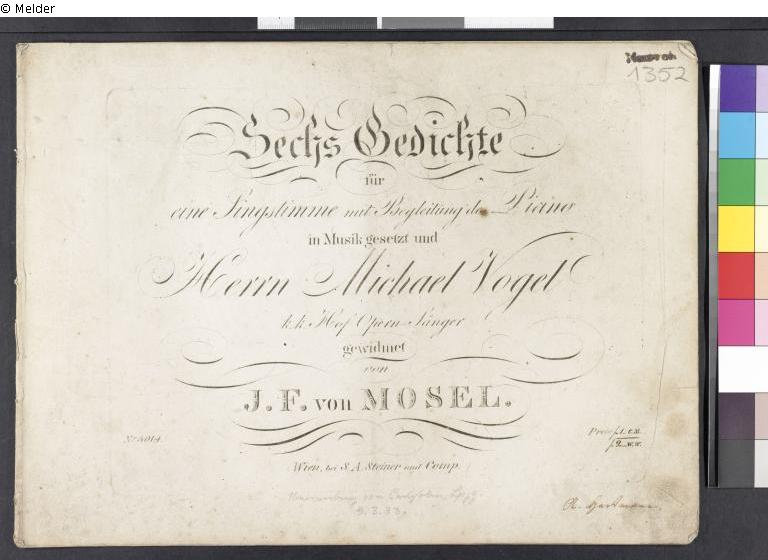 © Melder
1352
Sechs Gedichte
für
eine Singstimme mit Begleitung des Piano
in Musik gesetzt und
Herrn Michael Vogel
k.k. Hof Opern Sänger
gewidmet
von
J. F. von MOSEL.
No. 4014.
Preis f. 1. C.M.
f. 2. W.W.
Wien, bei S. A. Steiner und Comp.